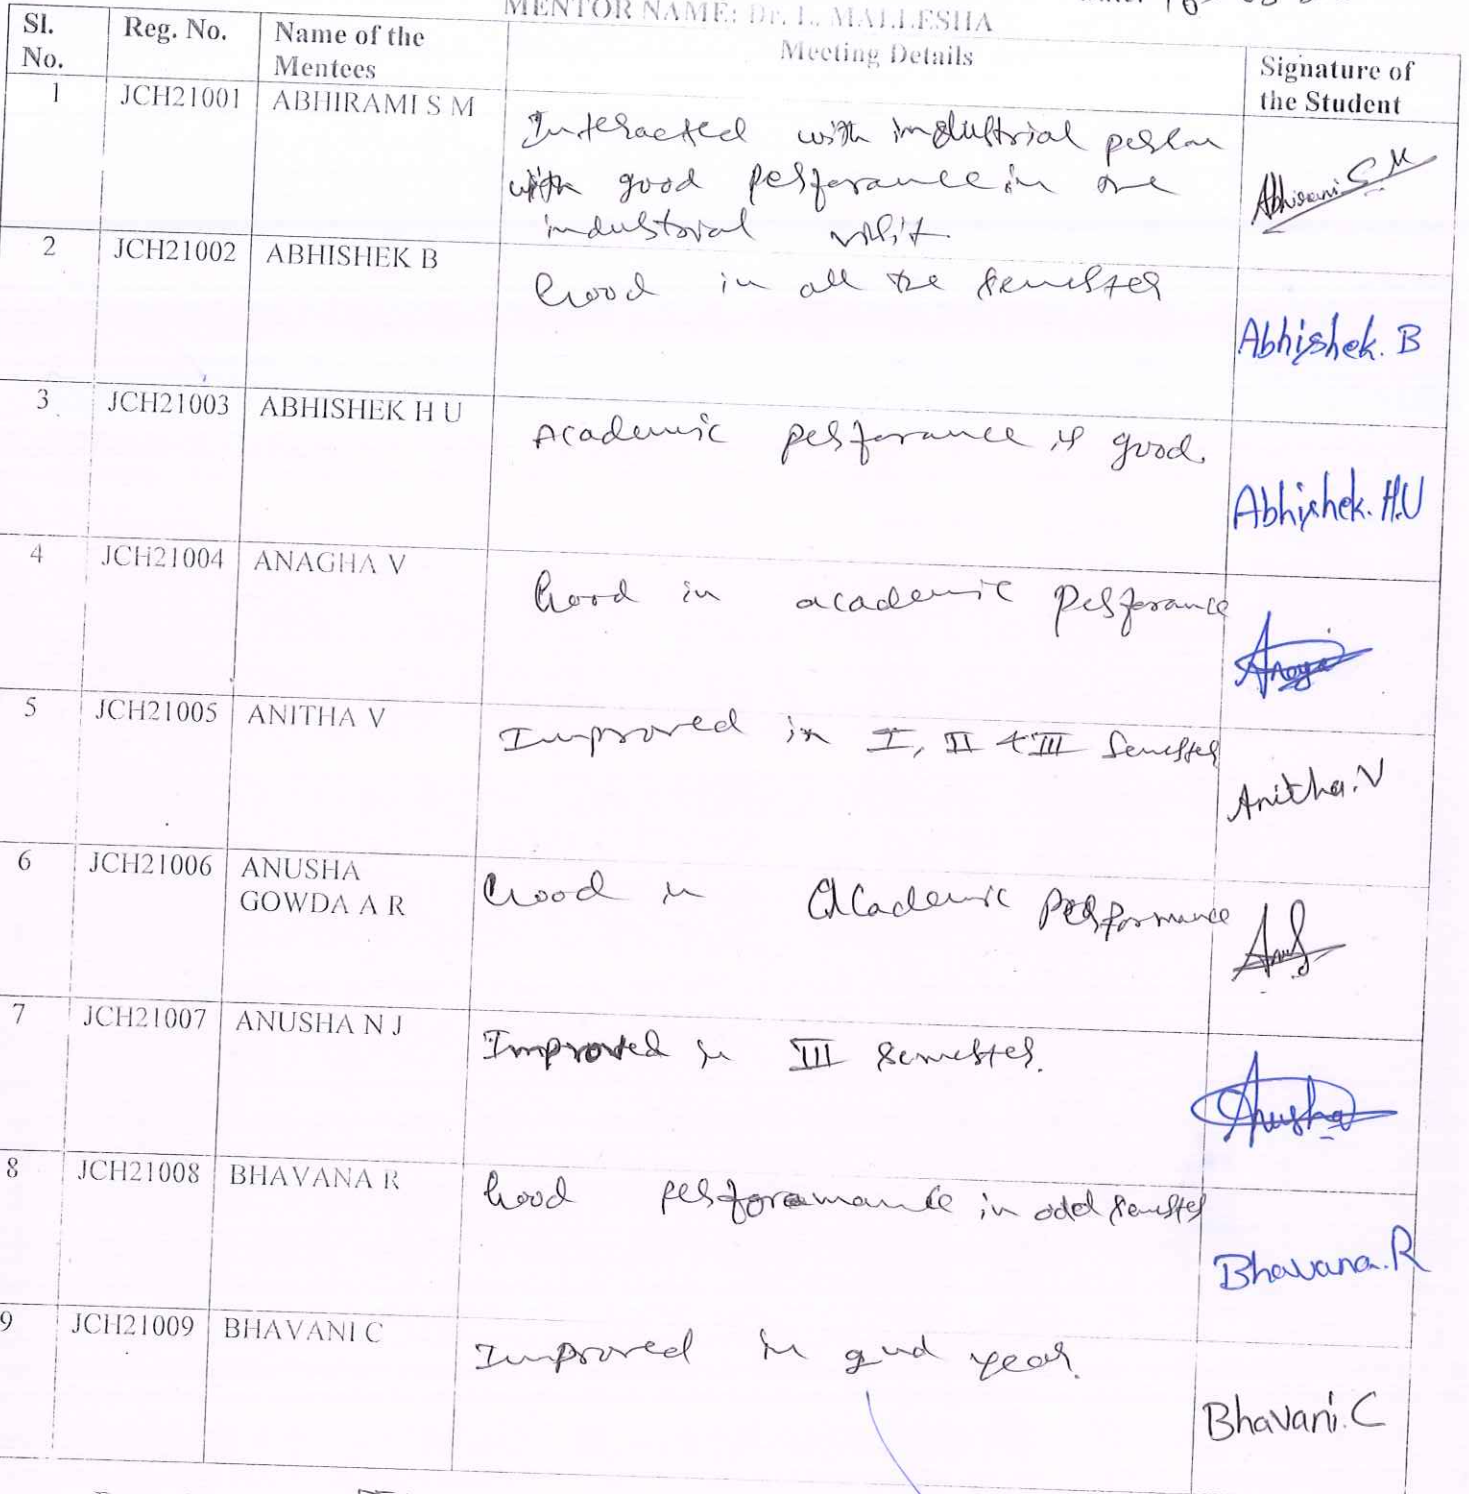 MENTOR NAME: Dr. L. MALLESHA
Sl. No. Reg. No. Name of the Mentees Meeting Details Signature of the Student
1 JCH21001 ABHIRAMI S M Interacted with industrial person
with good perforance in one
industrial visit. Abhirami S.M
2 JCH21002 ABHISHEK B Good in all the semester Abhishek. B
3 JCH21003 ABHISHEK H U Academic perforance is good. Abhishek. H.U
4 JCH21004 ANAGHA V Good in academic perforance
5 JCH21005 ANITHA V Improved in I, II & III Semester Anitha.V
6 JCH21006 ANUSHA Good in Academic Performance
GOWDA A R
7 JCH21007 ANUSHA N J Improved in III semester. Anusha
8 JCH21008 BHAVANA R Good performance in odd semester Bhavana.R
9 JCH21009 BHAVANI C Improved in 2nd year. Bhavani.C